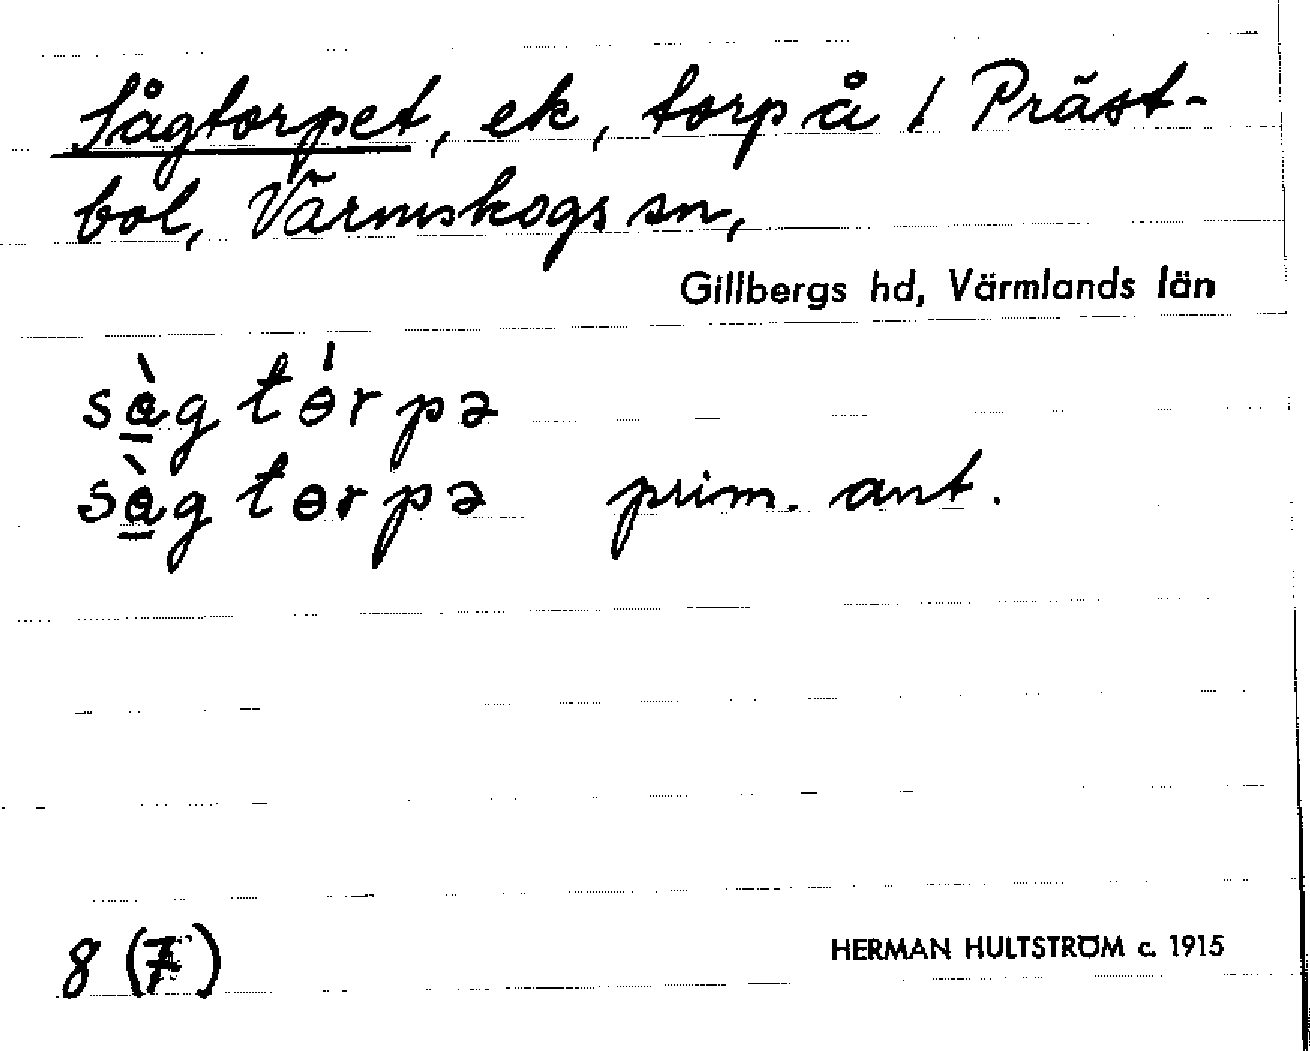 Sågtorpet, ek, torp å 1 Präst-
bol, Värmskogs sn,
Gillbergs hd, Värmlands län
sàg tɵ́rpə
sàg tɵrpə prim. ant.
8 (7)
HERMAN HULTSTRÖM c. 1915